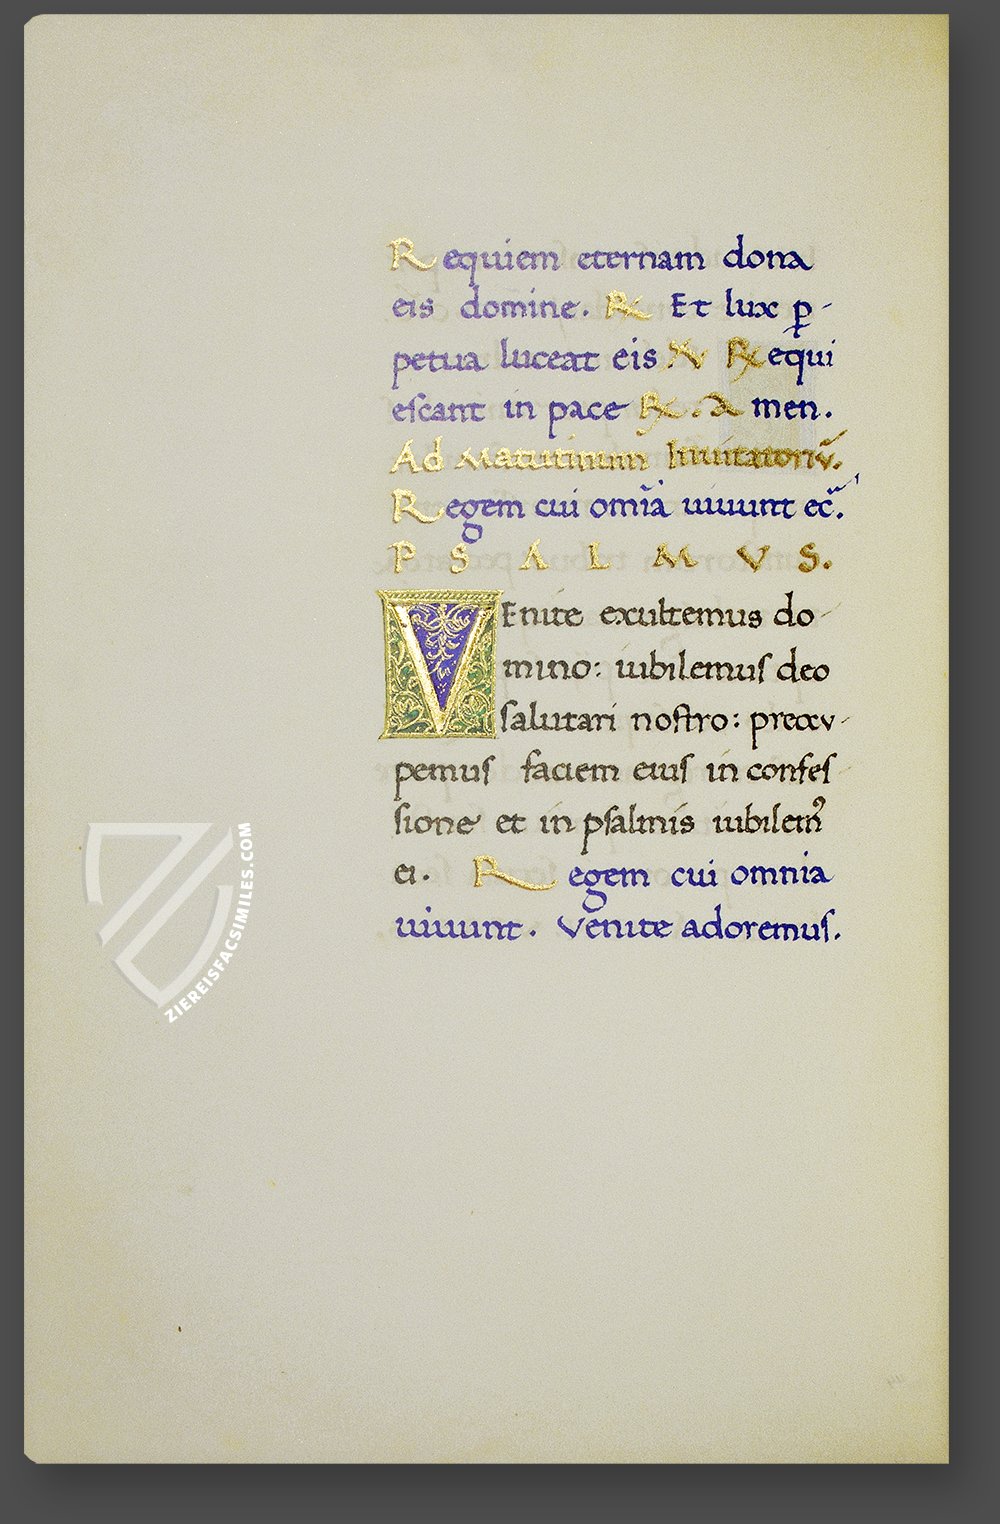 Requiem eternam dona
eis domine. ℞ Et lux ꝑ-
petua luceat eis ℣ Requi
eſcant in pace ℞. A men.
Ad Matutinum Inuitatoriū.
Regem cui omīa uiuunt ec̄.
PSALMVS.
VEnite exultemus do-
mino: iubilemuſ deo
ſalutari noſtro: preocv-
pemuſ faciem eiuſ in confeſ-
ſione et in pſalmis iubilemꝰ
ei. Regem cui omnia
uiuunt. Venite adoremuſ.
ZIEREISFACSIMILES.COM